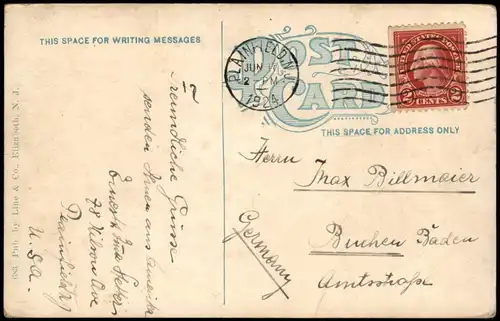 THIS SPACE FOR WRITING MESSAGES
POST
CARD
THIS SPACE FOR ADDRESS ONLY
PLAINFIELD, N.J.
JUN
2 PM
1924
2 CENTS 2
Freundliche Grüsse
senden Ihnen aus Amerika
Ernest & Ima
78 Wilson Ave
Plainfield N.J.
U.S.A.
Herrn
Max Billmaier
Buchen Baden
Amtsstraße
Germany
683. Pub. by Line & Co., Elizabeth, N. J.